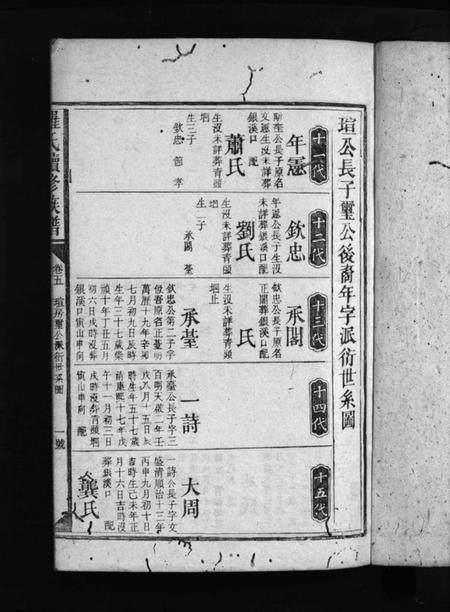 瑄公長子璽公後裔年字派衍世系圖
十一代
年憲
公長子原名
文運生沒未詳葬
銀溪口 配
蕭氏
生沒未詳葬青頭
垇
生三子
欽忠 節 孝
十二代
欽忠
年憲公長子生沒
未詳葬銀溪口配
劉氏
生沒未詳葬青頭
垇
生二子
承閣 臺
十三代
承閣
欽忠公長子原名
正閣葬銀溪口配
氏
生沒未詳葬青頭
垇止
承臺
欽忠公第二子字
俊吾原名正臺明
萬歷十九年辛卯
七月初九日辰時
生年三十七歲崇
禎十年丁丑五月
初六日戌時沒葬
銀溪口寅山申向
十四代
一詩
承臺公長子字三
百明天啟二年壬
戌八月十五日辰
時生年五十七歲
清康熙十七年戊
午十一月初三日
戌時沒葬青頭垇
寅山申向 配
十五代
大周
一詩公長子字文
盛清順治十三年
丙申九月初十日
吉時生己未年正
月十六日吉時沒
葬銀溪口 配
龔氏
羅氏續修族譜
卷五
瑄房璽公派衍世系圖
一號